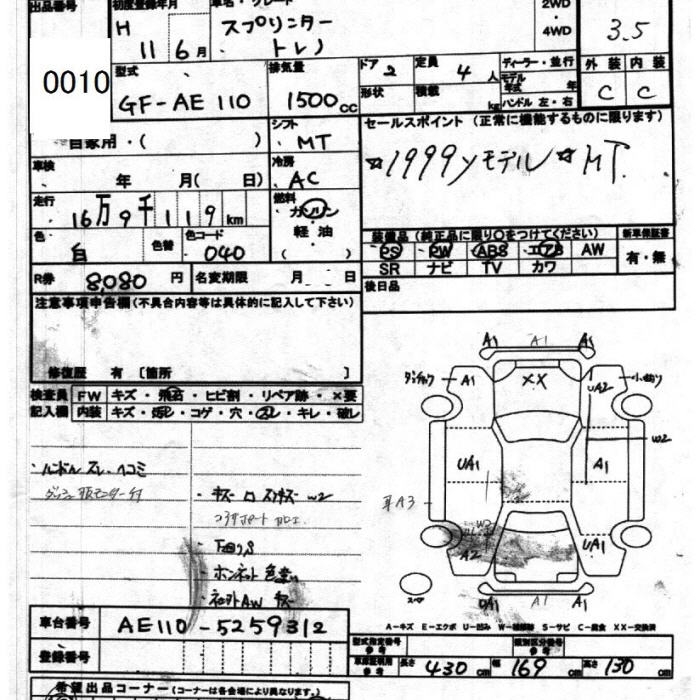 出品番号 初度登録年月 車名・グレード 2WD
・
4WD
3.5
H 11 6月 スプリンター
トレノ
0010
型式 排気量 ドア 2 定員 4人 ディーラー・並行
モデル年式 年
外装 内装
GF-AE110 1500cc 形状 積載 kg ハンドル 左・右 C C
自家用・( ) シフト MT セールスポイント (正常に機能するものに限ります)
☆1999yモデル☆MT.
車検 年 月( 日) 冷房 AC
走行 16万9千119km 燃料 ガソリン
軽油
( )
色 白 色替 色コード 040
装備品 (純正品に限り○をつけてください) 新車保証書
PS PW ABS エアB AW 有・無
SR ナビ TV カワ
R券 8,080円 名変期限 月 日
後日品
注意事項申告欄 (不具合内容等は具体的に記入して下さい)
修復歴 有 〔箇所
検査員 FW キズ・飛石・ヒビ割・リペア跡・×要
記入欄 内装 キズ・汚レ・コゲ・穴・スレ・キレ・破レ
A1 A1 A1
A1 XX UA2
W2
UA1 A1
A3
W2
A2 UA1
A1 A1
ハンドル スレ・ヘコミ
W2
下回りS
ボンネット色違い
AW キズ
A−キズ E−エクボ U−凹み W−補修跡 S−サビ C−腐食 XX−交換済
車台番号 AE110-5259312
登録番号
型式指定番号
参考
類別区分番号
参考
車庫証明用
参考
長さ 430 cm 幅 169 cm 高さ 130 cm
希望出品コーナー (コーナーは各会場により異なります。